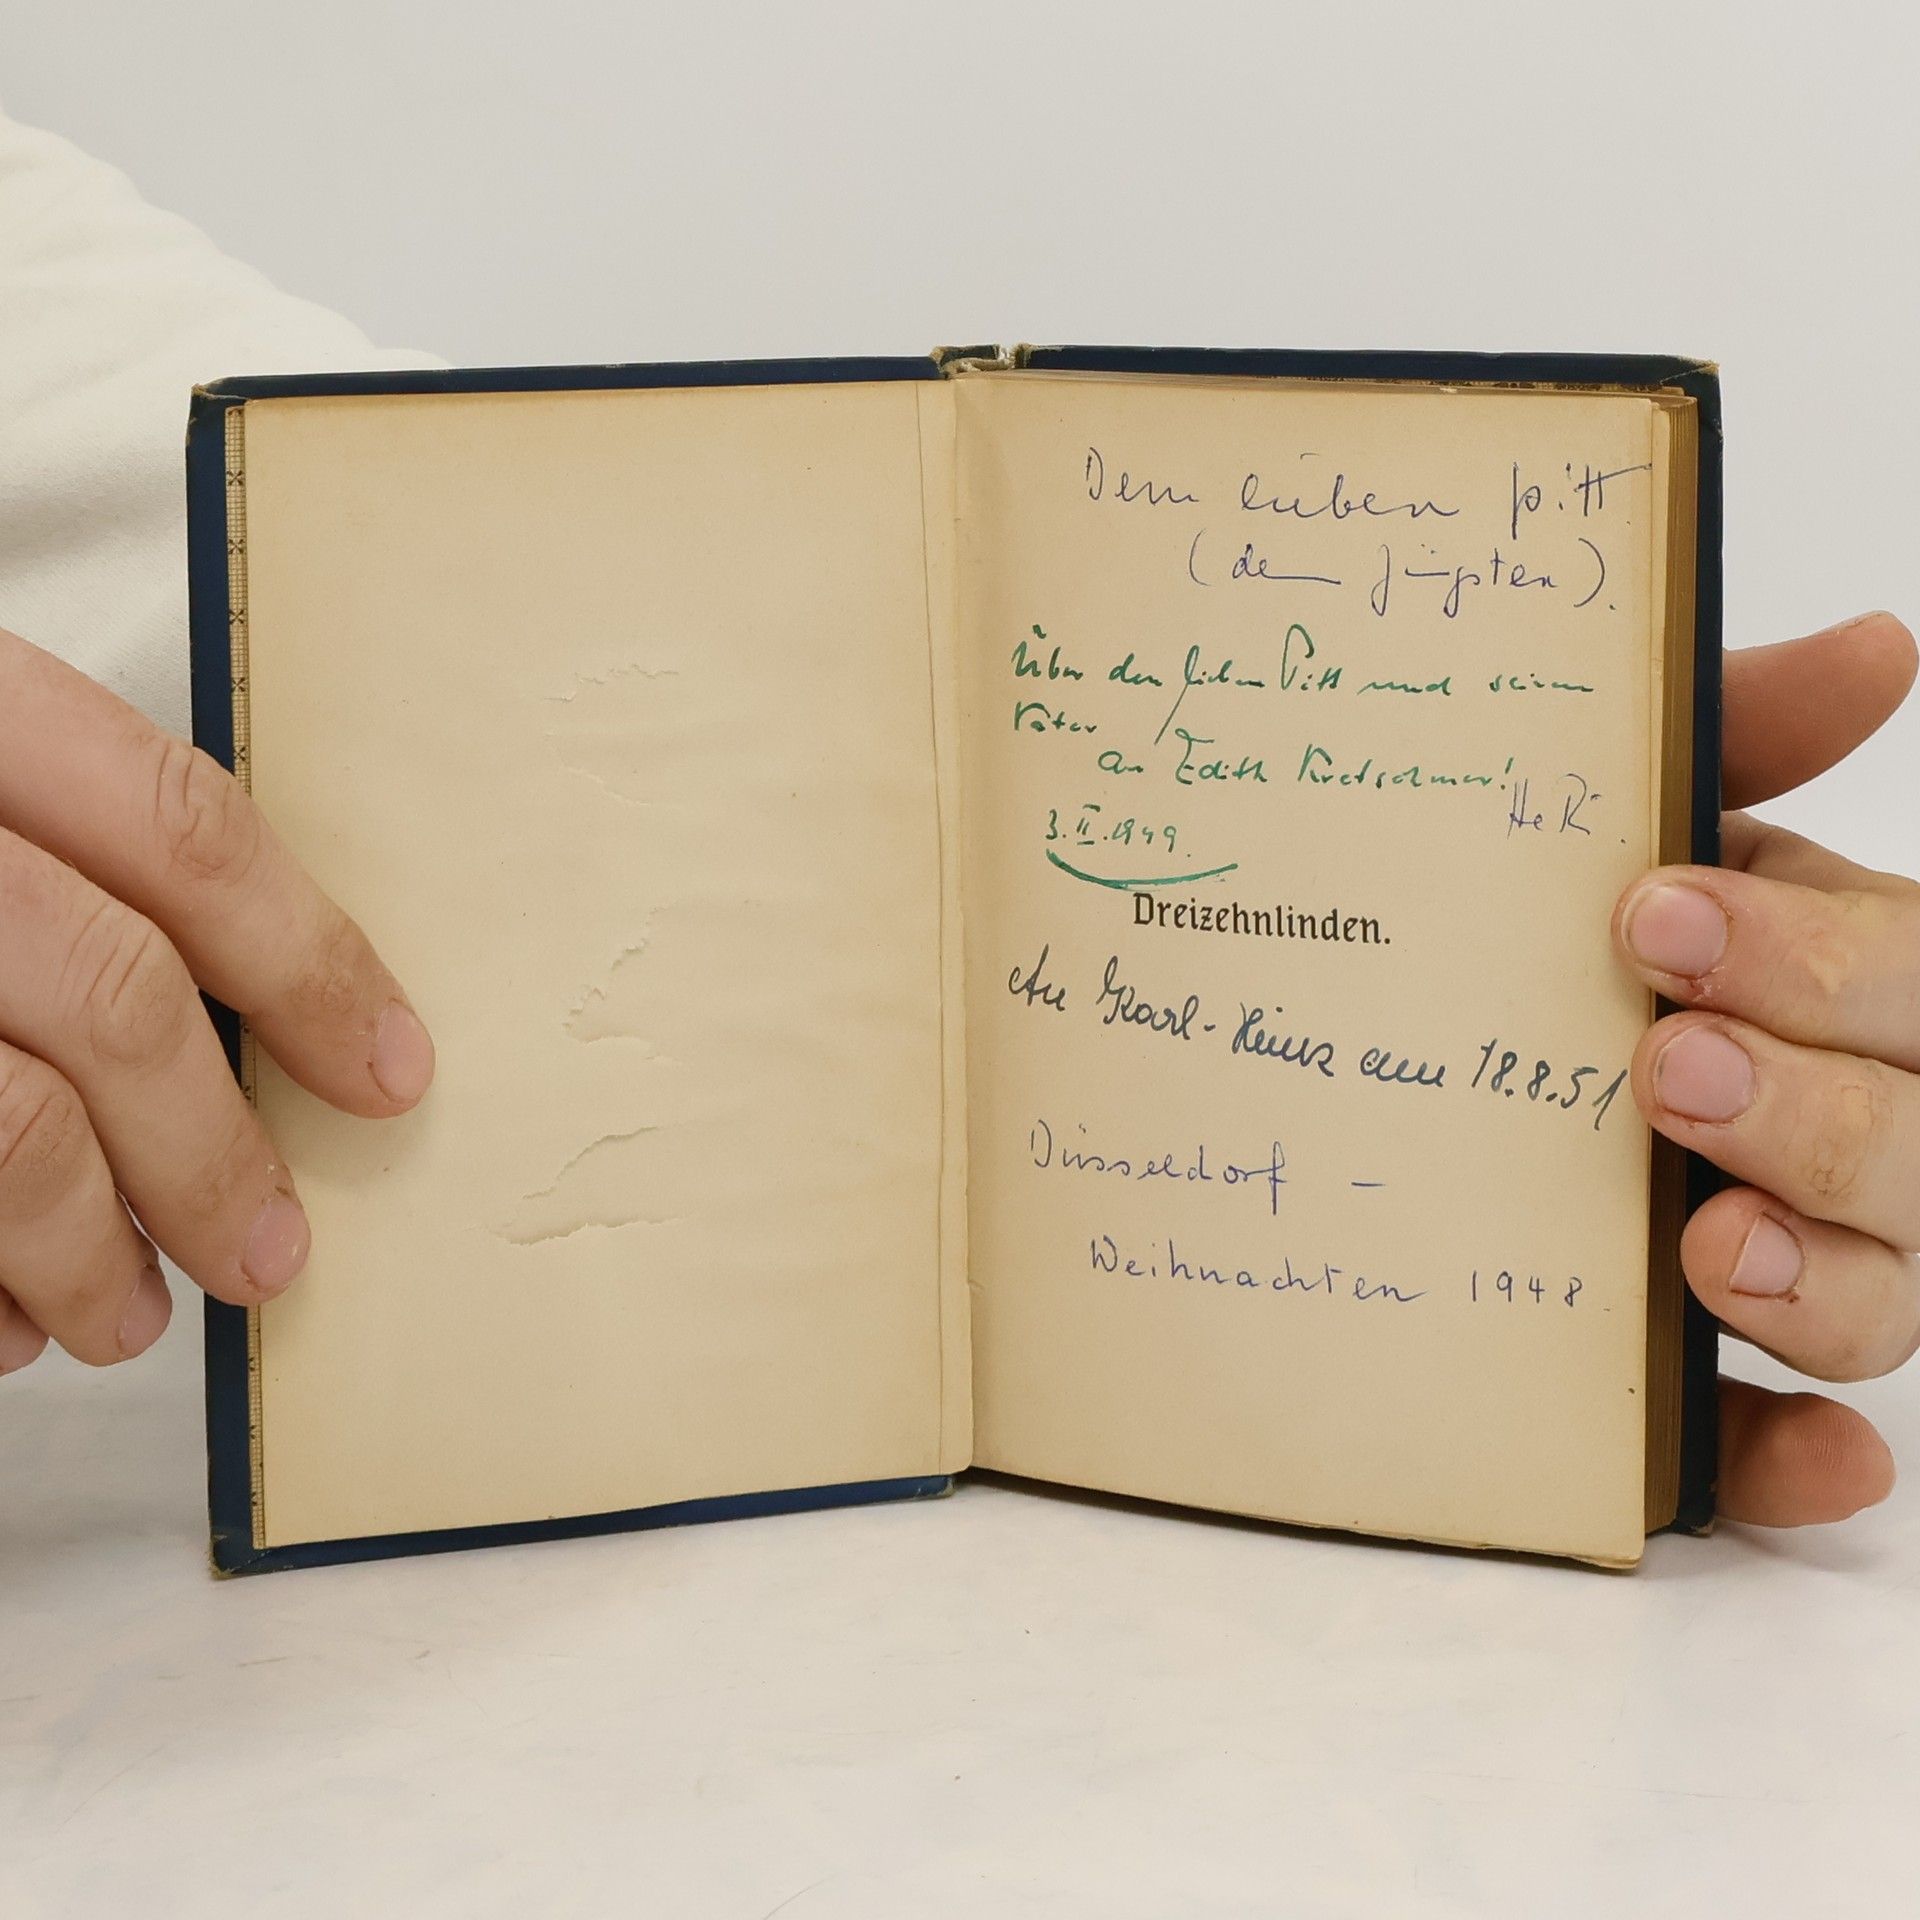 Dem lieben Pitt
(dem Jüngsten).
Über den lieben Pitt und seinen
Vater
an Edith Kretschmer!
He Ri.
3.II.1949.
Dreizehnlinden.
An Karl-Heinz am 18.8.51
Düsseldorf –
Weihnachten 1948